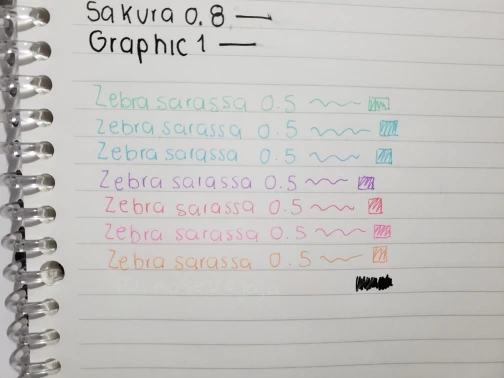 Sakura 0.8
Graphic 1
Zebra sarassa 0.5
Zebra sarassa 0.5
Zebra sarassa 0.5
Zebra sarassa 0.5
Zebra sarassa 0.5
Zebra sarassa 0.5
Zebra sarassa 0.5